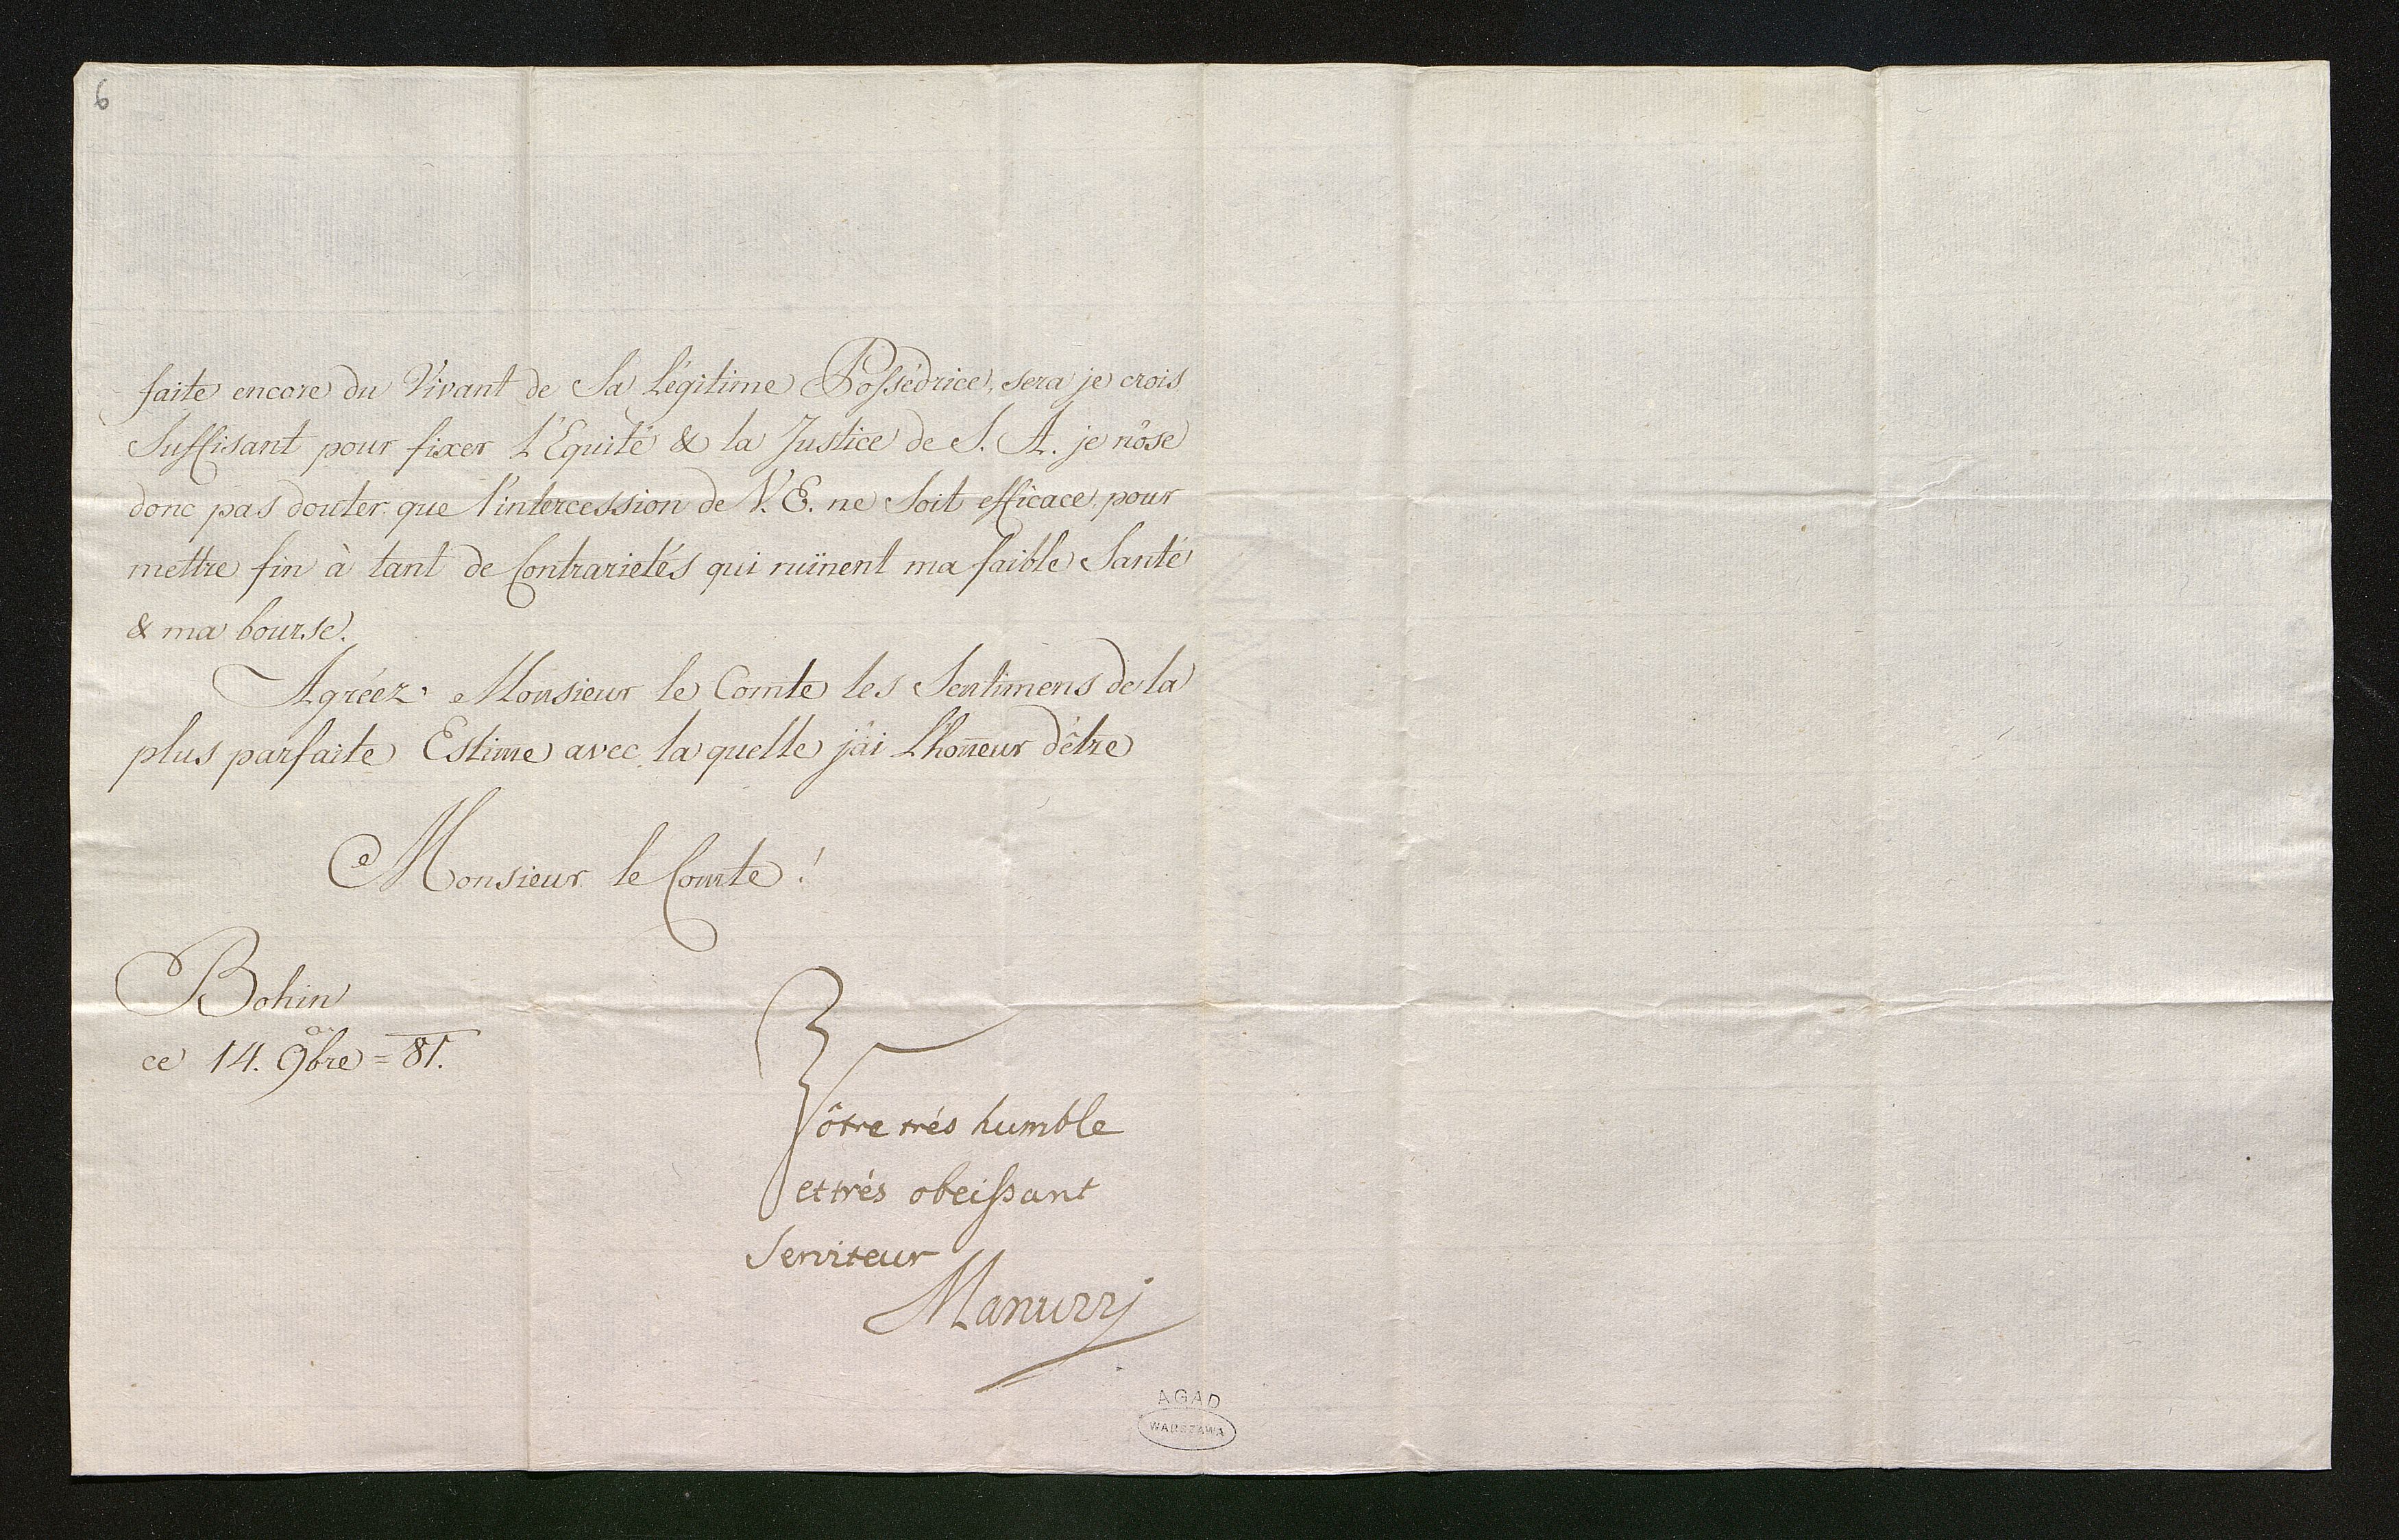 6
faite encore du Vivant de Sa Légitime Possédrice, sera je crois
Suffisant pour fixer l'Equité & la Justice de S. A. je n'ôse
donc pas douter que l'intercession de V. E. ne Soit efficace pour
mettre fin à tant de Contrarietés qui ruinent ma faible Santé
& ma bourse.
Agréez Monsieur le Comte les Sentimens de la
plus parfaite Estime avec la quelle j'ai L'honneur d'être
Monsieur le Comte!
Bohin
ce 14. 9bre = 81.
Vôtre trés humble
et trés obeissant
Serviteur
Manuzzj
AGAD
WARSZAWA